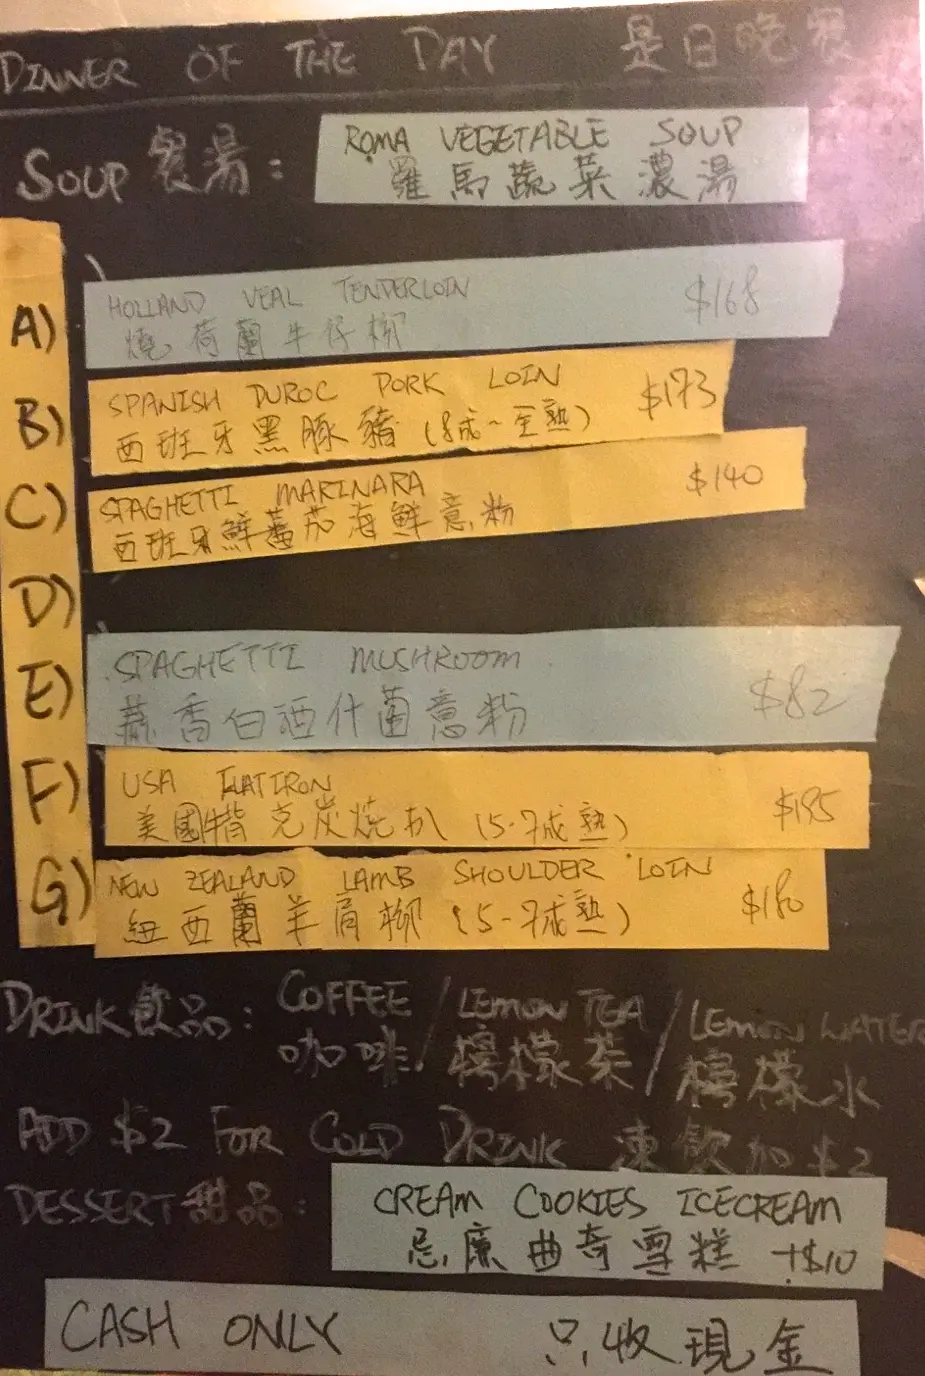 DINNER OF THE DAY 是日晚餐
SOUP 餐湯: ROMA VEGETABLE SOUP
羅馬蔬菜濃湯
A) HOLLAND VEAL TENDERLOIN $168
燒荷蘭牛仔柳
B) SPANISH DUROC PORK LOIN $173
西班牙黑豚豬 (8成~全熟)
C) SPAGHETTI MARINARA $140
西班牙鮮蕃茄海鮮意粉
D)
E) SPAGHETTI MUSHROOM $82
香白酒什菌意粉
F) USA FLATIRON
美國牛背克炭燒扒 (5-7成熟)
G) NEW ZEALAND LAMB SHOULDER LOIN $180
紐西蘭羊肩柳 (5-7成熟)
DRINK 飲品: COFFEE / LEMON TEA / LEMON WATER
咖啡 / 檸檬茶 / 檸檬水
ADD $2 FOR COLD DRINK 凍飲加 $2
DESSERT 甜品: CREAM COOKIES ICECREAM
忌廉曲奇雪糕 +$10
CASH ONLY 只收現金